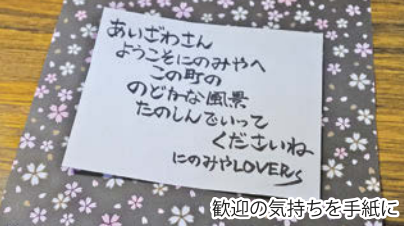 あいざわさん
ようこそにのみやへ
この町の
のどかな風景
たのしんでいって
くださいね
にのみやLOVERS
歓迎の気持ちを手紙に